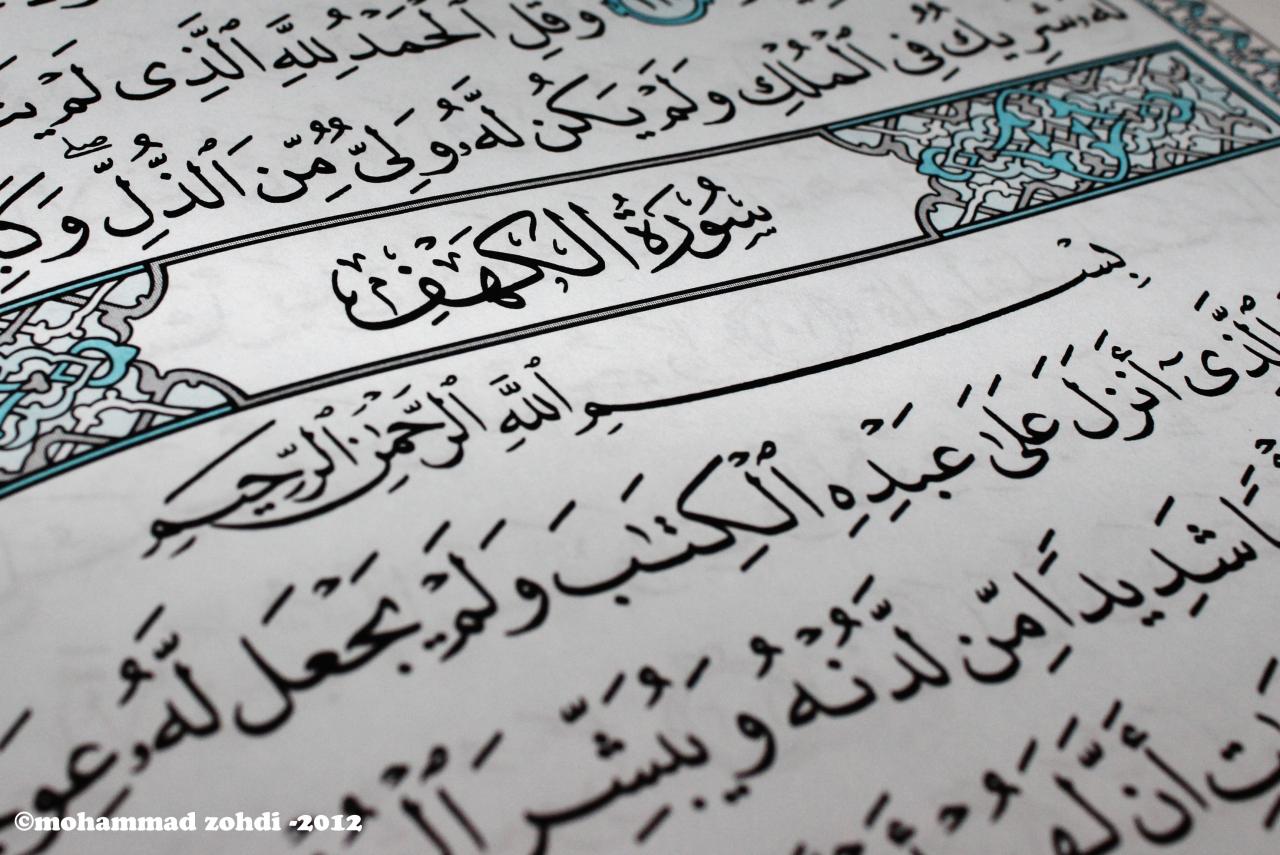 وَقُلِ ٱلْحَمْدُ لِلَّهِ ٱلَّذِى لَمْ
لَّهُۥ شَرِيكٌ فِى ٱلْمُلْكِ وَلَمْ يَكُن لَّهُۥ وَلِىٌّ مِّنَ ٱلذُّلِّ ۖ
سُورَةُ الْكَهْفِ
بِسْمِ ٱللَّهِ ٱلرَّحْمَٰنِ ٱلرَّحِيمِ
ٱلَّذِىٓ أَنزَلَ عَلَىٰ عَبْدِهِ ٱلْكِتَٰبَ وَلَمْ يَجْعَل لَّهُۥ
شَدِيدًا مِّن لَّدُنْهُ وَيُبَشِّرَ
أَنَّ لَهُمْ
©mohammad zohdi -2012